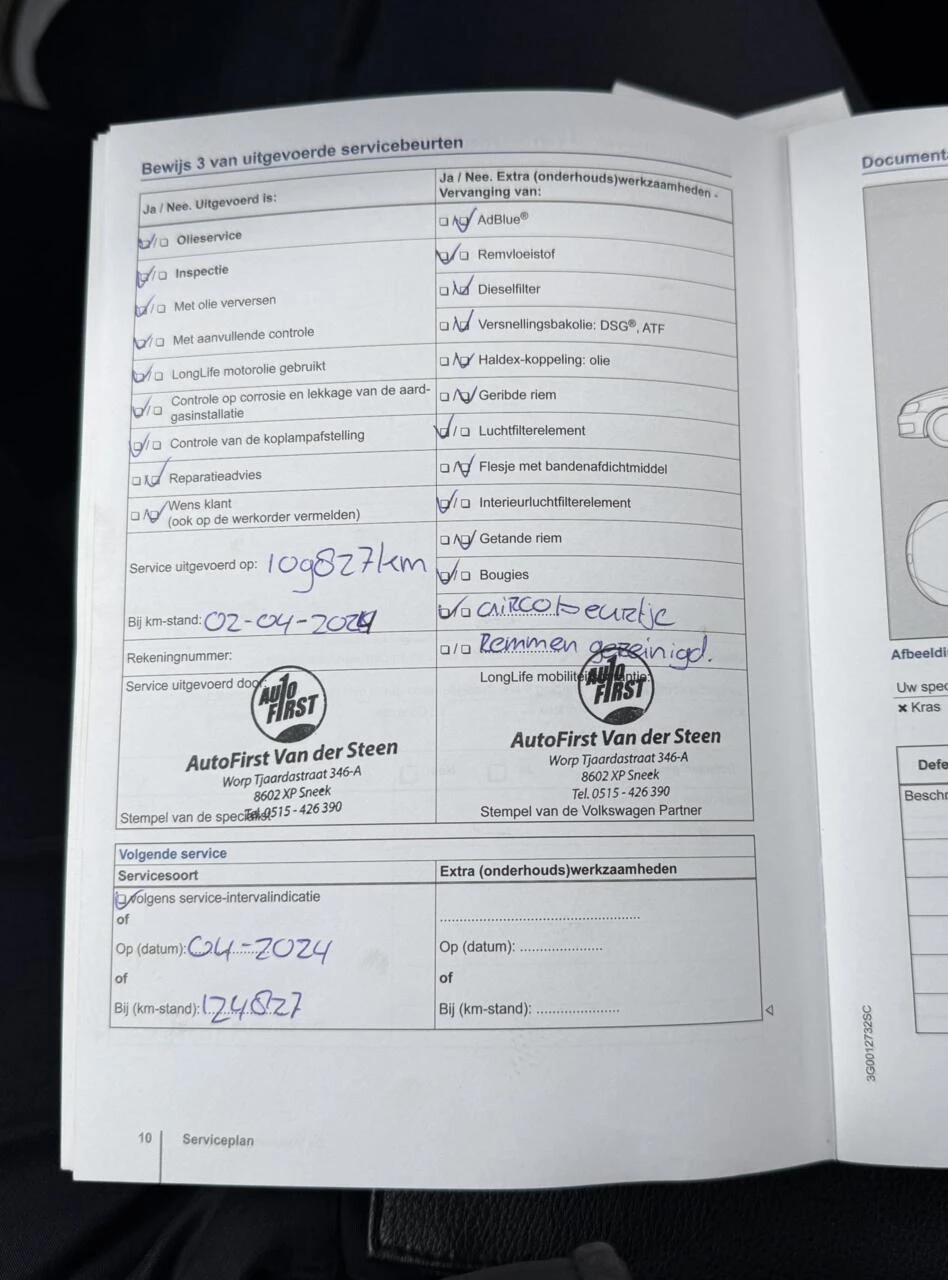 Bewijs 3 van uitgevoerde servicebeurten
Ja / Nee. Uitgevoerd is:
Olieservice
Inspectie
Met olie verversen
Met aanvullende controle
LongLife motorolie gebruikt
Controle op corrosie en lekkage van de aard-
gasinstallatie
Controle van de koplampafstelling
Reparatieadvies
Wens klant
(ook op de werkorder vermelden)
Service uitgevoerd op: 109827km
Bij km-stand: 02-04-2024
Rekeningnummer:
Service uitgevoerd door:
AUTO
FIRST
AutoFirst Van der Steen
Worp Tjaardastraat 346-A
8602 XP Sneek
Tel. 0515 - 426 390
Stempel van de specialist
Ja / Nee. Extra (onderhouds)werkzaamheden -
Vervanging van:
AdBlue®
Remvloeistof
Dieselfilter
Versnellingsbakolie: DSG®, ATF
Haldex-koppeling: olie
Geribde riem
Luchtfilterelement
Flesje met bandenafdichtmiddel
Interieurluchtfilterelement
Getande riem
Bougies
aircobeurtje
Remmen gereinigd.
LongLife
AUTO
FIRST
AutoFirst Van der Steen
Worp Tjaardastraat 346-A
8602 XP Sneek
Tel. 0515 - 426 390
Stempel van de Volkswagen Partner
Volgende service
Servicesoort
Volgens service-intervalindicatie
of
Op (datum): 04-2024
of
Bij (km-stand): 124827
Extra (onderhouds)werkzaamheden
Op (datum):
of
Bij (km-stand):
10 Serviceplan
Documenta
Afbeeldi
Uw spec
× Kras
Defe
Beschr
3G0012732SC